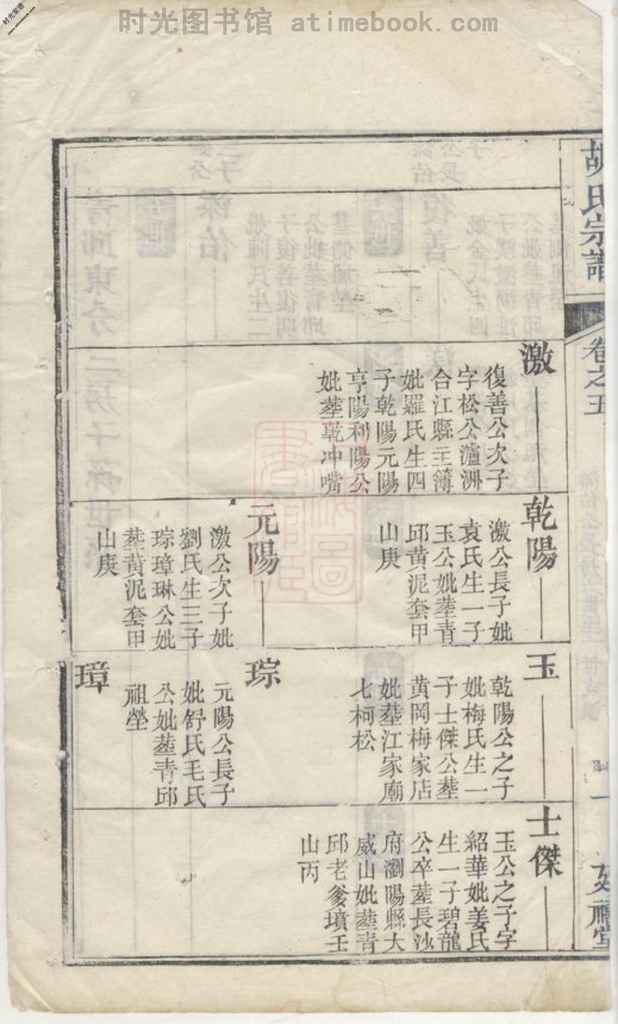 时光图书馆 atimebook.com
时光家谱
胡氏宗譜
卷之五
一
激
復善公次子
字松公瀘洲
合江縣主簿
妣羅氏生四
子乾陽元陽
亨陽利陽公
妣塟乾冲嘴
乾陽
激公長子妣
袁氏生一子
玉公妣塟青
邱黄泥套甲
山庚
元陽
激公次子妣
劉氏生三子
琮璋琳公妣
塟黄泥套甲
山庚
玉
乾陽公之子
妣梅氏生一
子士傑公塟
黄岡梅家店
妣塟江家廟
七柯松
琮
元陽公長子
妣舒氏毛氏
公妣塟青邱
祖塋
璋
士傑
玉公之子字
紹華妣姜氏
生一子碧龍
公卒塟長沙
府瀏陽縣大
威山妣塟青
邱老爹墳壬
山丙